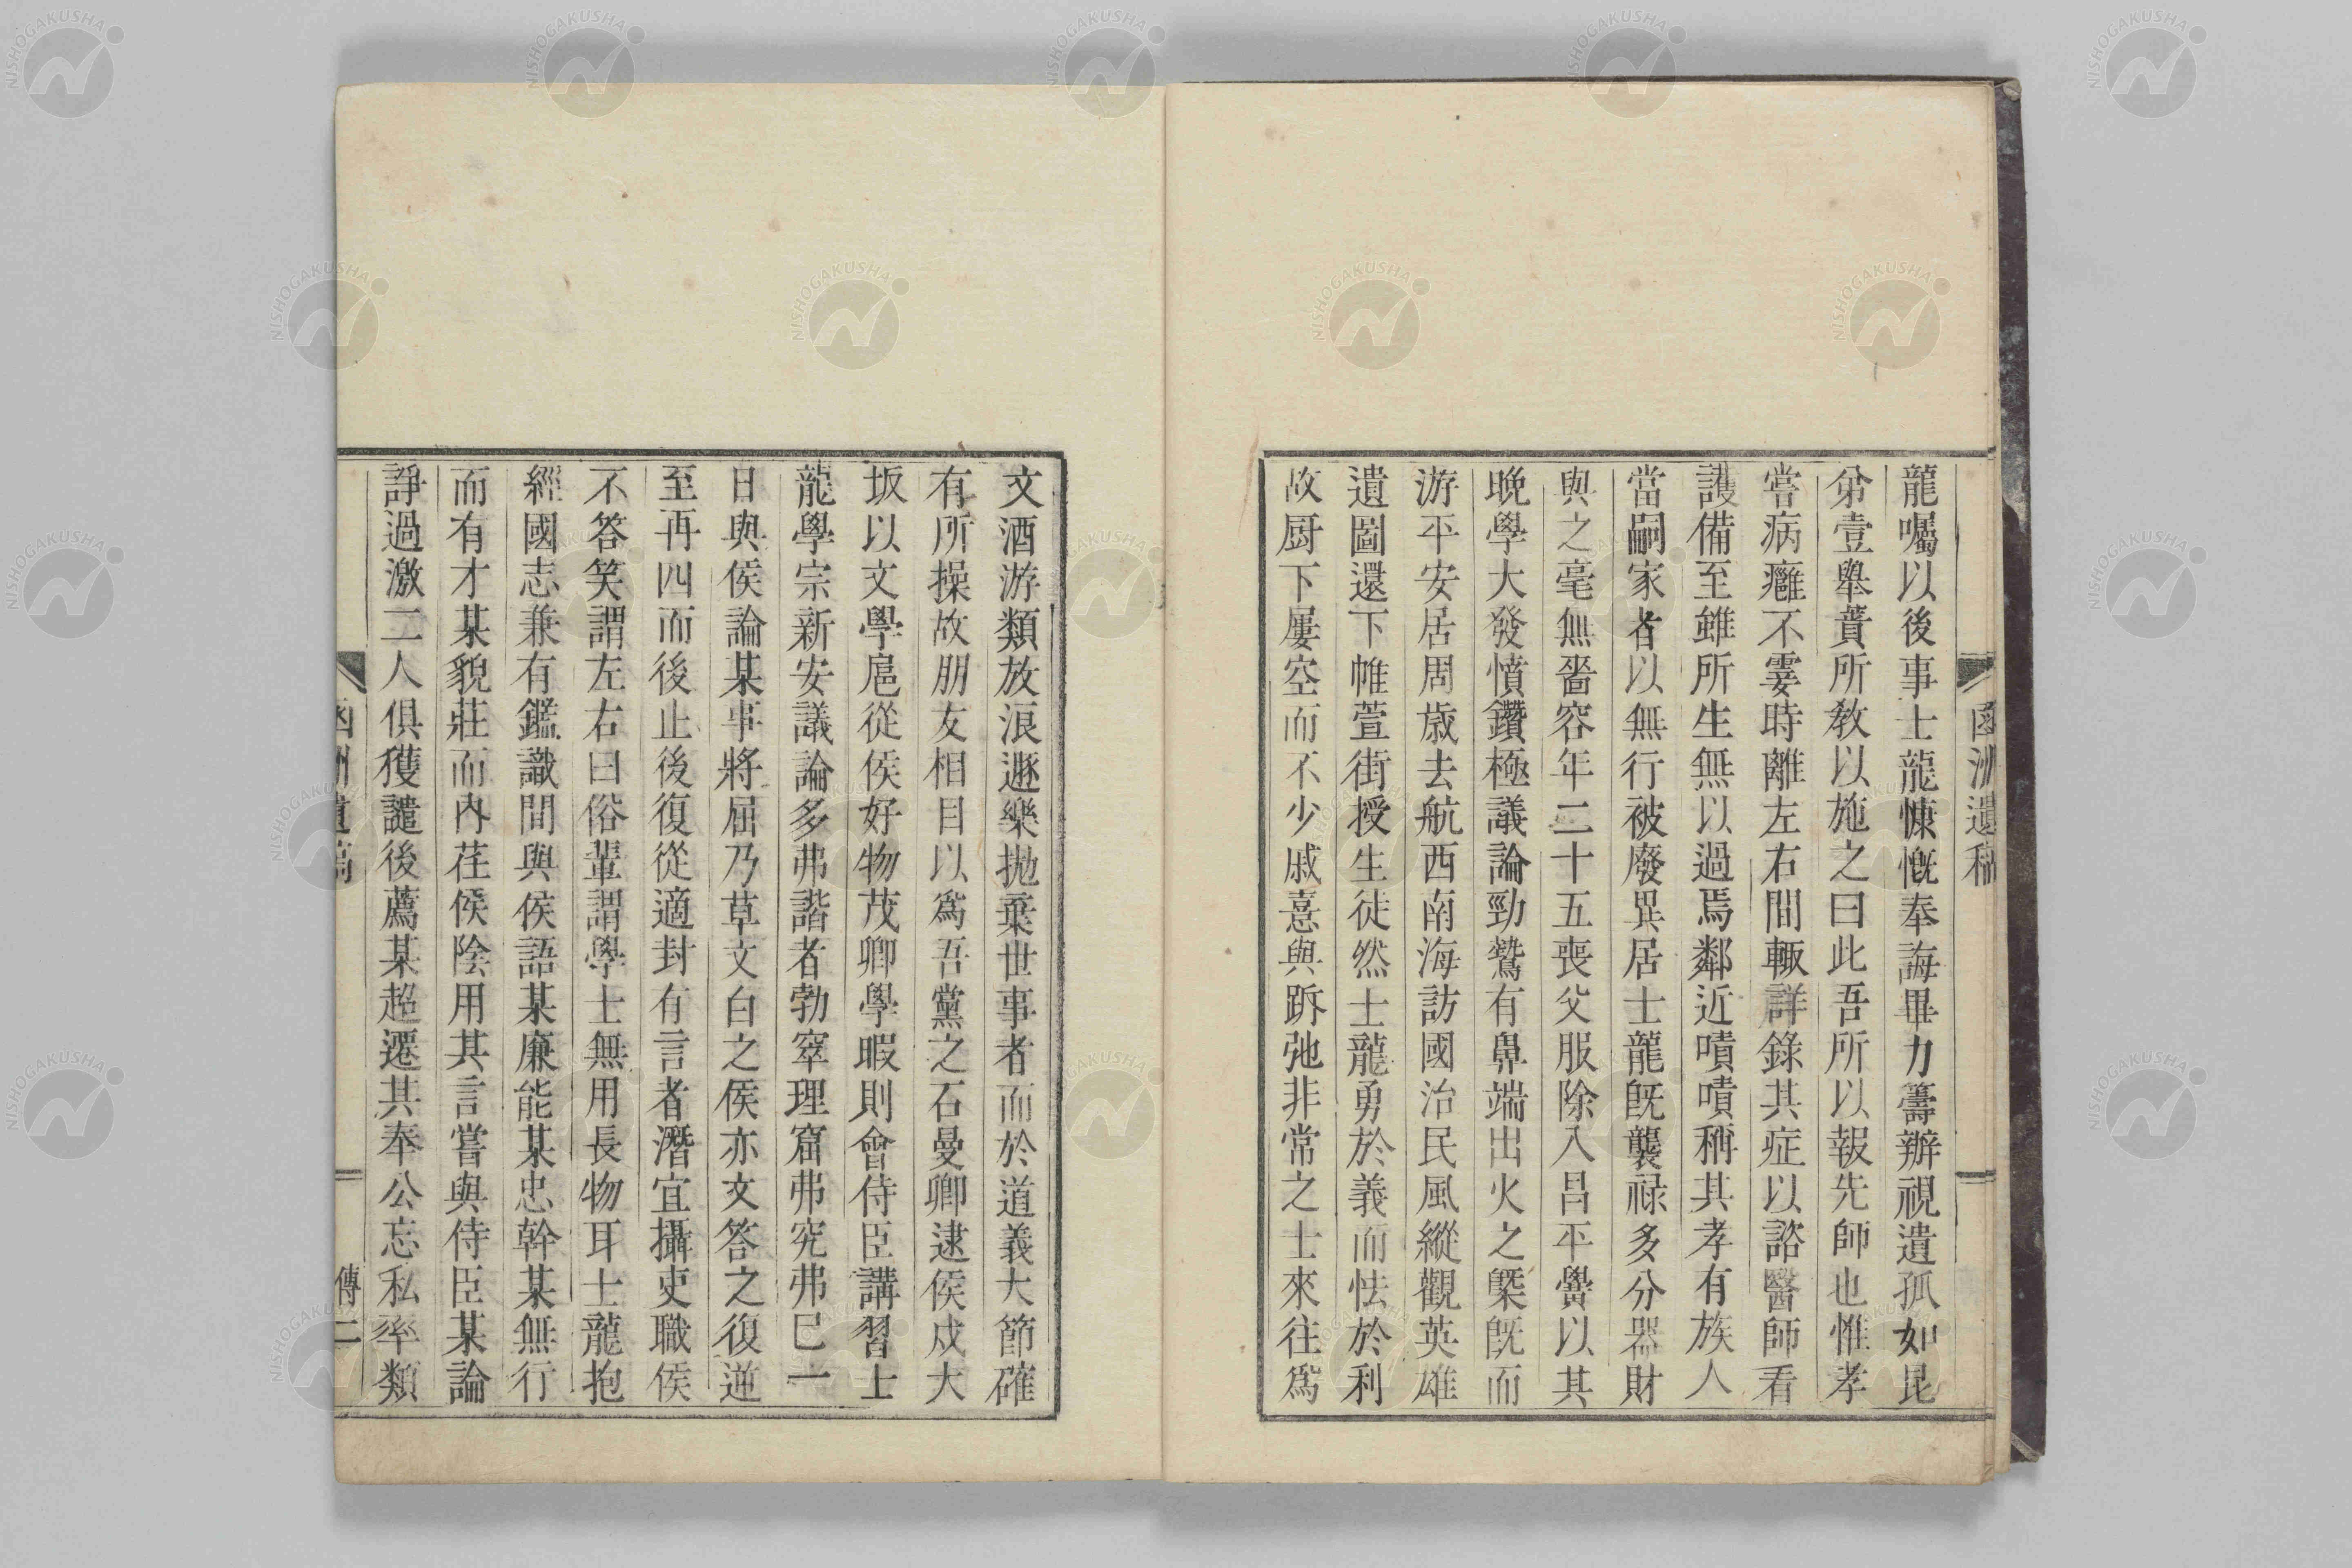 龍囑以後事士龍慷慨奉誨畢力籌辦視遺孤如昆
弟壹舉蕢所敎以施之曰此吾所以報先師也惟孝
嘗病癰不霎時離左右間輙詳錄其症以諮醫師看
護備至雖所生無以過焉鄰近嘖嘖稱其孝有族人
當嗣家者以無行被廢異居士龍旣襲祿多分器財
與之毫無嗇容年二十五喪父服除入昌平黌以其
晩學大發憤鑽極議論勁鷙有鼻端出火之槩旣而
游平安居周歲去航西南海訪國治民風縱觀英雄
遺圖還下帷萱街授生徒然士龍勇於義而怯於利
故厨下屢空而不少戚憙與跅弛非常之士來往爲
文酒游類放浪遯樂拋棄世事者而於道義大節確
有所操故朋友相目以爲吾黨之石曼卿逮侯戍大
坂以文學扈從侯好物茂卿學暇則會侍臣講習士
龍學宗新安議論多弗諧者勃窣理窟弗究弗已一
日與侯論某事將屈乃草文白之侯亦文答之復逆
至再四而後止後復從適封有言者潛宜攝吏職侯
不答笑謂左右曰俗輩謂學士無用長物耳士龍抱
經國志兼有鑑識間與侯語某廉能某忠幹某無行
而有才某貌莊而內荏侯陰用其言嘗與侍臣某論
諍過激二人俱獲譴後薦某超遷其奉公忘私率類
函洲遺稿
傳二